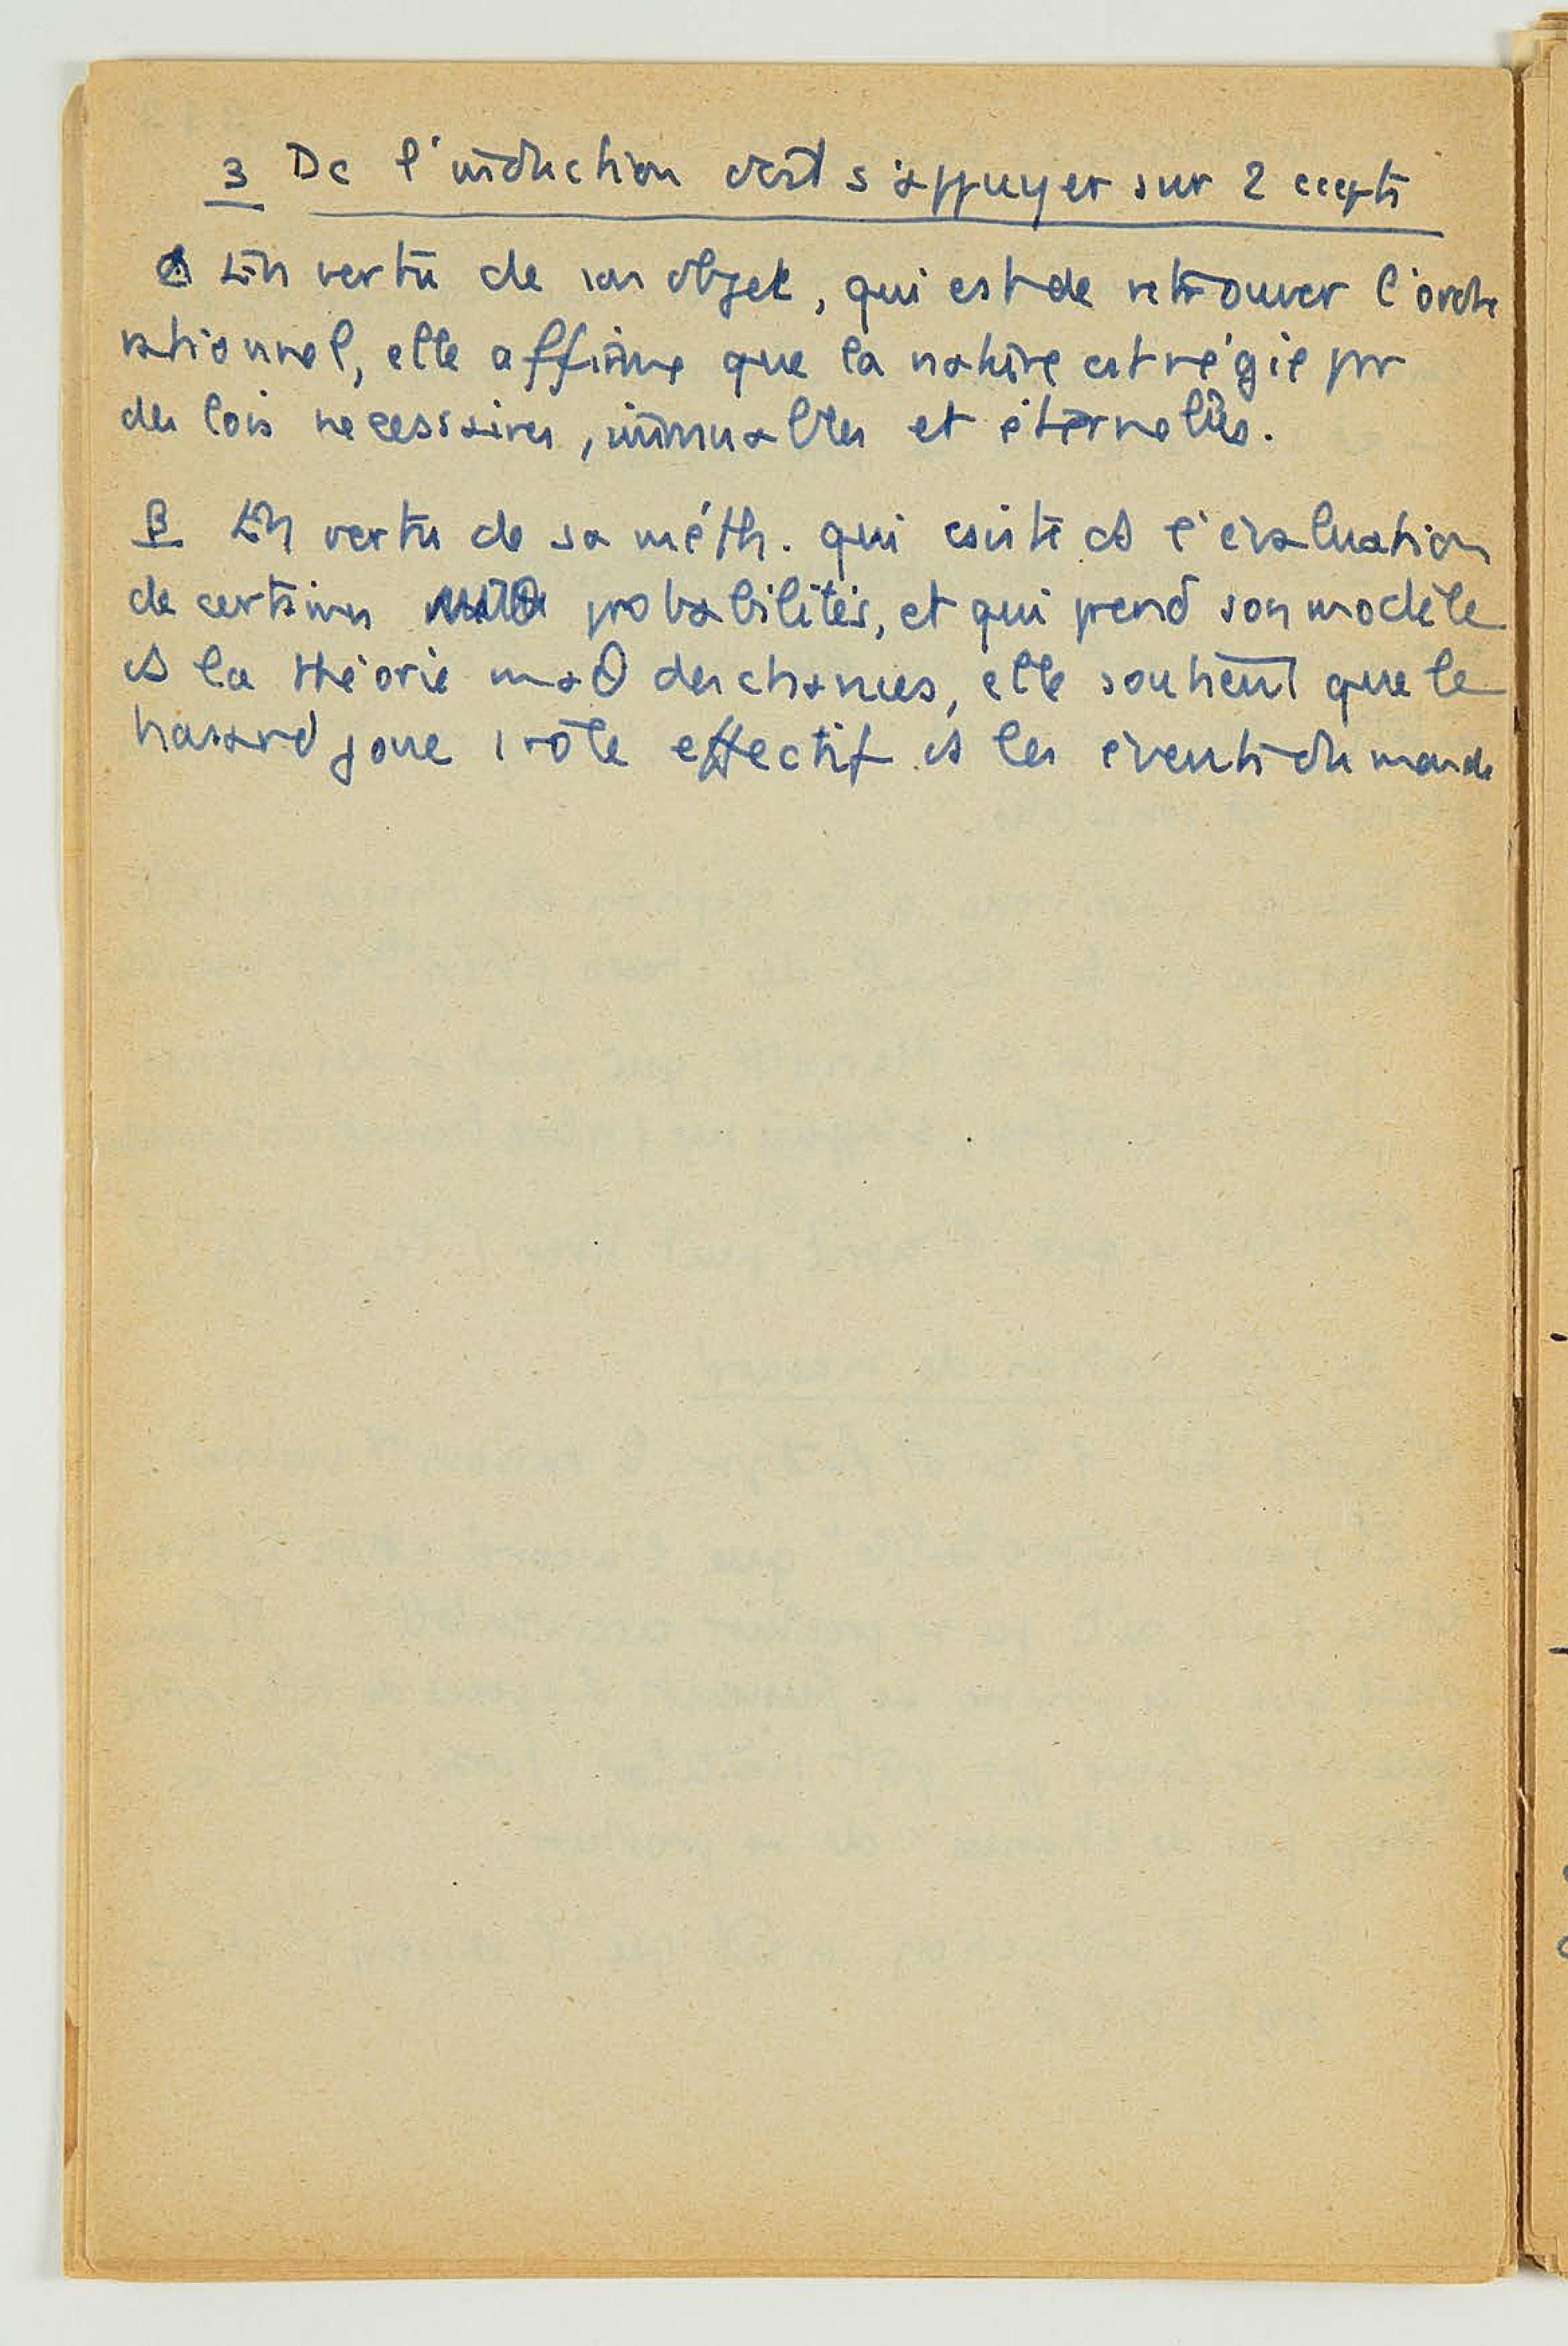 3 Dc l'induction doit s'appuyer sur 2 ccepts
A En vertu de son objet, qui est de retrouver l'ordre
rationnel, elle affirme que la nature est régie pr
des lois necessaires, immuables et éternelles.
B En vertu de sa méth. qui csiste ds l'évaluation
de certaines probabilités, et qui prend son modèle
ds la théorie maθ des chances, elle soutient que le
hasard joue 1 rôle effectif ds les évents du monde